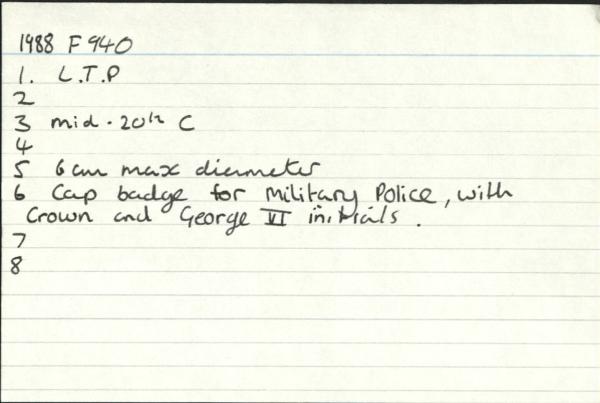 1988 F 940
1. L.T.P
2
3 mid-20th C
4
5 6cm max diameter
6 Cap badge for Military Police, with
Crown and George VI initials.
7
8